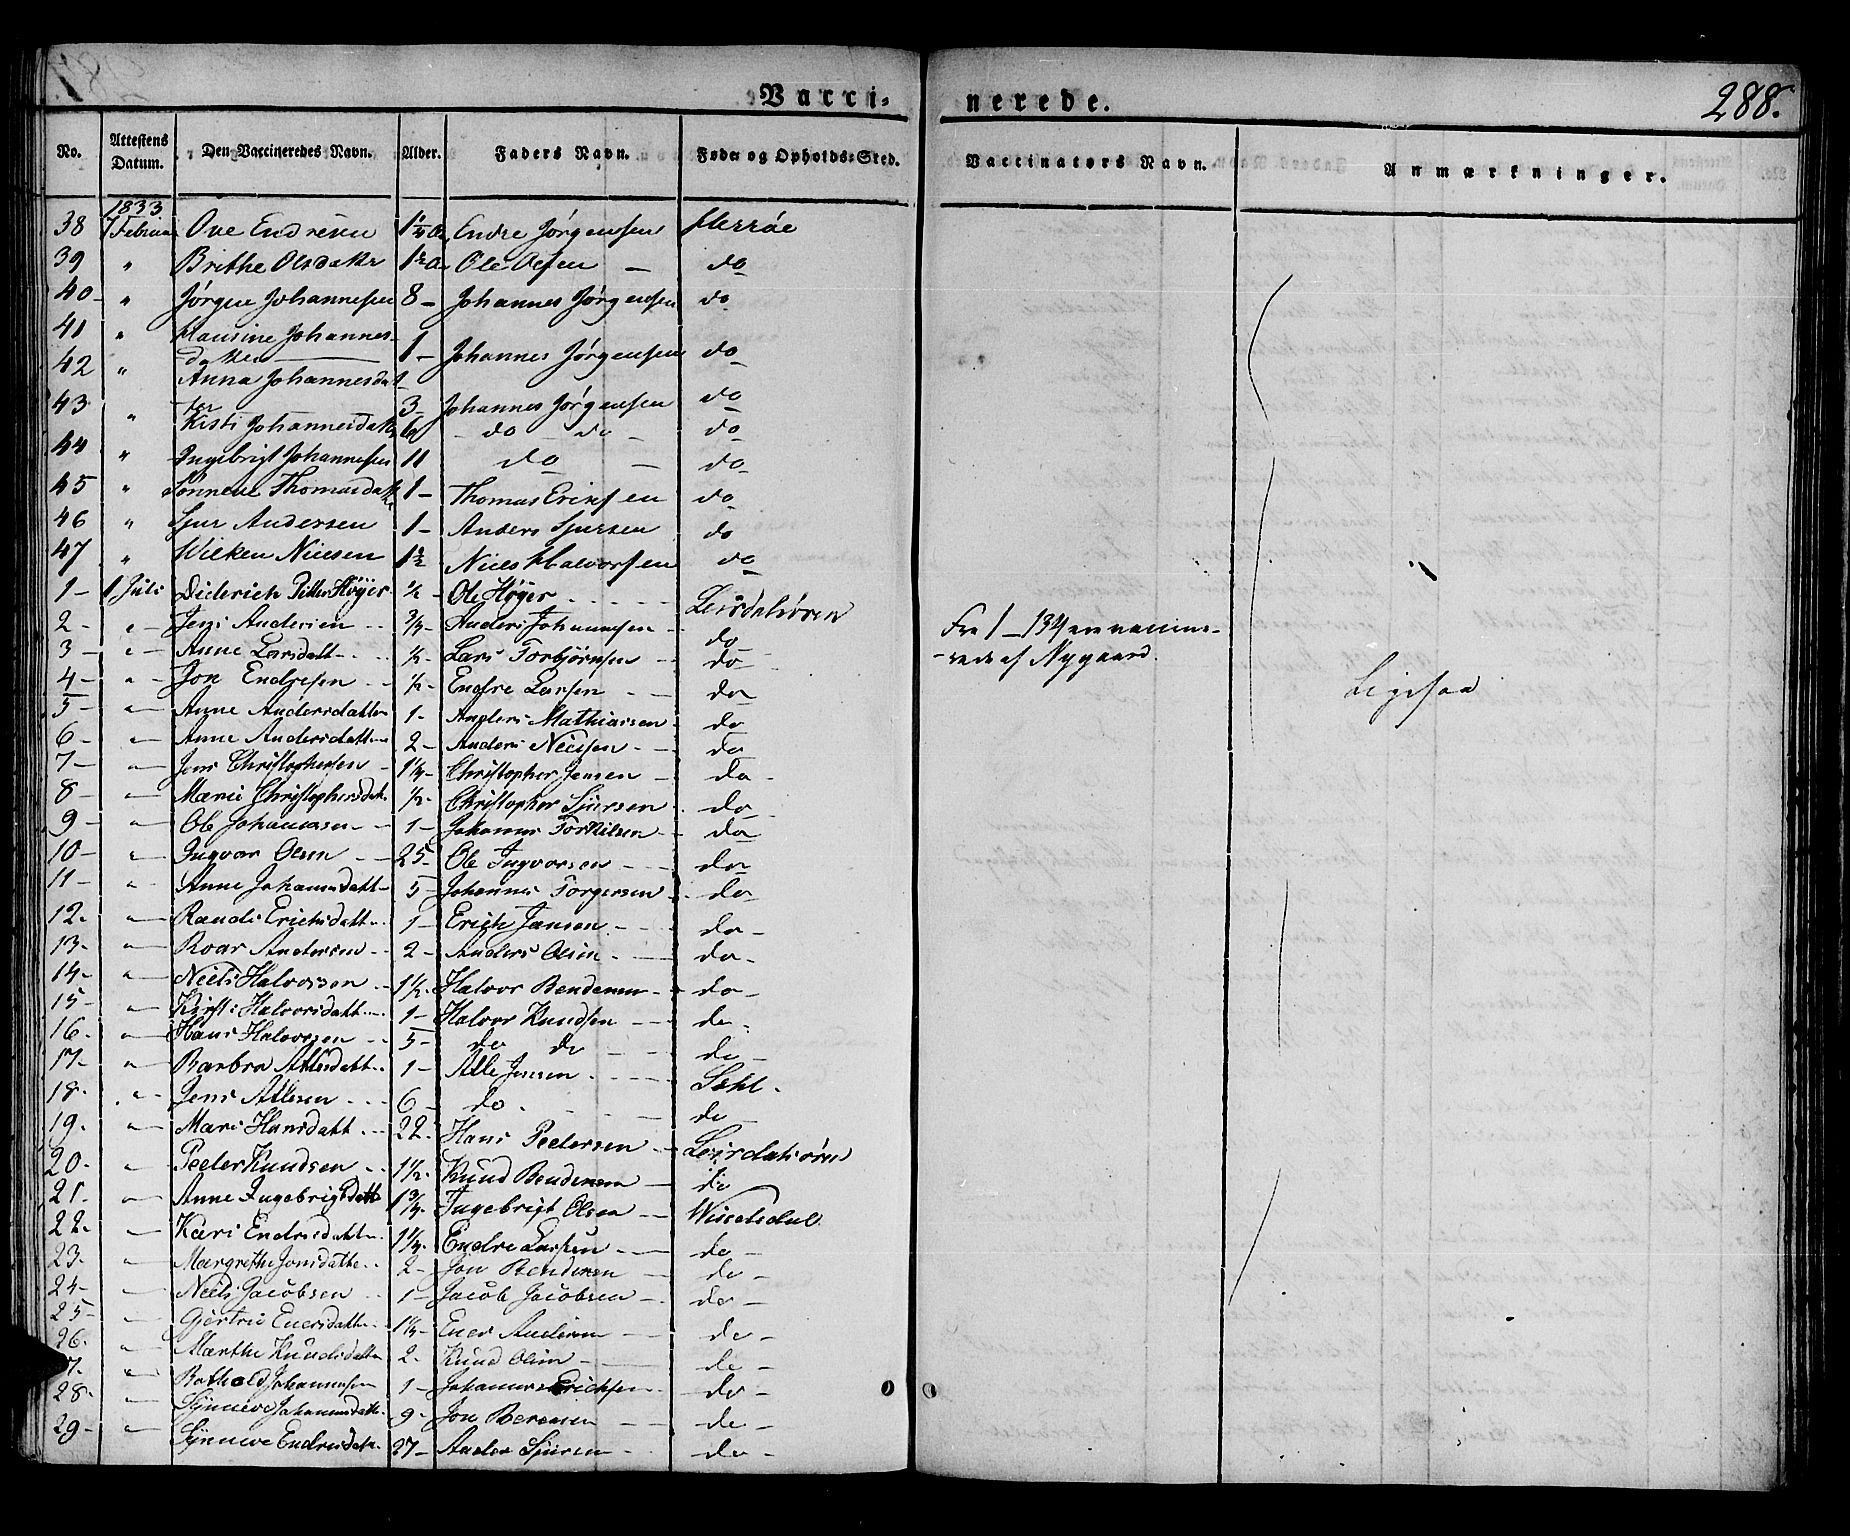 Vacci-
nerede.
288.
No. Attestens Datum. Den Vaccineredes Navn. Alder. Faders Navn. Føde- og Opholds-Sted. Vaccinators Navn. Anmærkninger.
1833
38 7 Februar Ove Endresen 1¼ Endre Jørgensen
39 " Brithe Olsdatter 1½ Ole Olsen — do
40 - " Jørgen Johannesen 8 - Johannes Jørgensen do
41 " Klausine Johannes-
datter 1 - Johannes Jørgensen do
42 " Anna Johannesdat-
ter 3 - Johannes Jørgensen do
43 " Kisti Johannesdatter 6 - do - do - do
44 " Ingebrigt Johannesen 11 do — do
45 " Sønneve Thomasdatter 1 - Thomas Ericksen do
46 " Sjur Andersen 1 - Anders Sjursen do
47 " Wilken Nielsen 1½ Niels Halvorsen do
1 - 1 Juli Diderich Petter Høyer ½ - Ole Høyer Leirdalsøren
2 - " - Jens Andersen ¾ - Anders Johannesen - do
3 - " - Anne Larsdatt ½ - Lars Torbjørnsen - do
4 - " - Jon Endresen ½ - Endre Larsen - do
5 - " - Anne Andersdatter 1 - Anders Mathiassen - do
6 - " - Anne Andersdatter 2 - Anders Nielsen - do
7 - " - Jens Christophersen 1¼ - Christopher Jensen - do -
8 - " - Marie Christophersdatt. ½ - Christopher Sjursen - do
9 - " - Ole Johannesen 1 - Johannes Torkilsen - do
10 - " - Ingvar Olsen 25 - Ole Ingvorsen - do
11 - " - Anne Johannesdatt - 5 - Johannes Torgersen - do -
12 - " - Randi Erichsdatt 1 - Erich Jansen - do -
13 - " - Roar Andersen 2 - Anders Olsen - do -
14 - " - Niels Halvorsen 1½ - Halvor Bendixen - do -
15 - " - Kirsti Halvorsdatt 1 - Halvor Knudsen - do -
16 - " - Hans Halvorsen 5 - do do - do -
17 - " - Barbra Atlesdatt 1 - Atle Jensen -
18 - " - Jens Atlesen 6 - do - do -
19 - " - Mari Hansdatt 22 - Hans Peetersen - Leirdalsøren
20 - " - Peeter Knudsen 1½ - Knud Bendixen - do
21 - " - Anne Ingebrigtsdatt 1¾ - Ingebrigt Olsen -
22 - " - Kari Endresdatter 1¼ - Endre Larsen - do -
23 - " - Margrethe Jonsdatter 2 - Jon Bendixen - do -
24 - " - Niels Jacobsen 1 - Jacob Jacobsen - do -
25 - " - Gjertrie Enersdatter 1¼ - Ener Andersen - do -
26 - " - Marthe Knudsdatter 2 - Knud Olsen - do -
27 - " - Johannesen 1 - Johannes Erichsen - do -
28 - " - Synneve Johannesdatt. 9 - Jon - do -
29 - " - Synneve Endresdatt. 27 - Anders Sjursen - do -
Fra 1 - 134 ere vaccine-
- rede af Nygaard.
Ligesaa